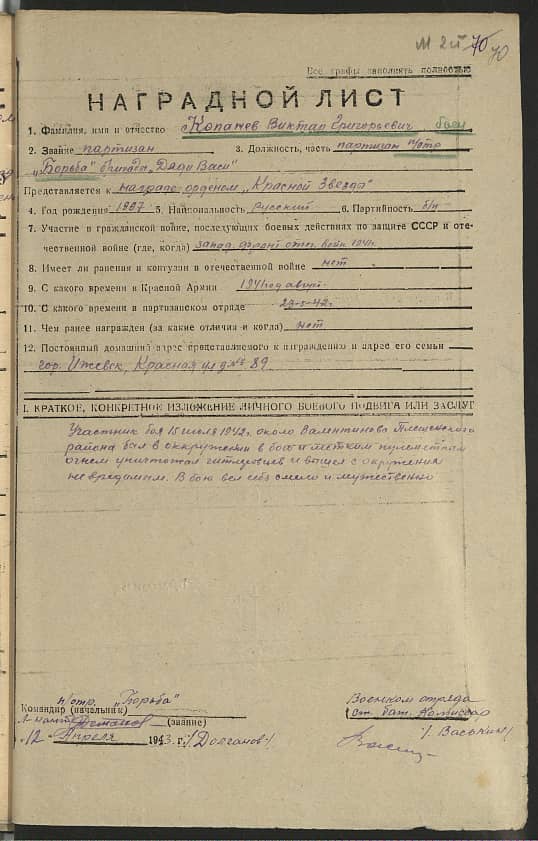 70
70
Все графы заполнять полностью
НАГРАДНОЙ ЛИСТ
1. Фамилия, имя и отчество Копачев Виктар Григорьевич
2. Звание партизан 3. Должность, часть партизан п/отр.
„Борьба" бригады „Дяди Васи"
Представляется к награде орденом „Красной Звезда"
4. Год рождения 1907 5. Национальность русский 6. Партийность б/п
7. Участие в гражданской войне, последующих боевых действиях по защите СССР и оте-
чественной войне (где, когда) запад. фронт отеч. войн 1941г.
8. Имеет ли ранения и контузии в отечественной войне нет
9. С какого времени в Красной Армии 1941 год август
10. С какого времени в партизанском отряде 42г.
11. Чем ранее награжден (за какие отличия и когда) нет
12. Постоянный домашний адрес представляемого к награждению и адрес его семьи
гор. Ижевск, Красная ул д № 89
I. КРАТКОЕ, КОНКРЕТНОЕ ИЗЛОЖЕНИЕ ЛИЧНОГО БОЕВОГО ПОДВИГА ИЛИ ЗАСЛУГ
Участник боя 15 июля 1942г. около Валентинова Плещенского
района был в оккружении в бою и метким пулеметным
огнем уничтожал гитлеровцев и вышел с окружения
не вредимым. В бою вел себя смело и мужественно
п/отр. „Борьба" Военком отряда
Командир (начальник) (ст. бат. Комиссар
(звание)
/. Васькин/
12 Апреля 1943 г. /. Долганов./